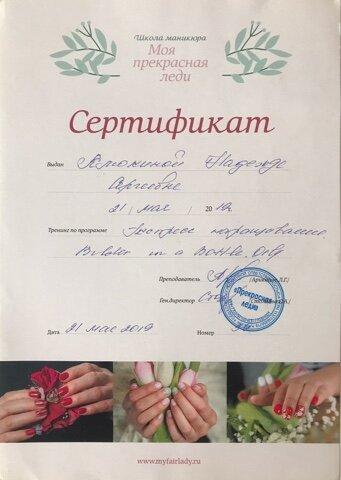 Школа маникюра
Моя
прекрасная
леди
Сертификат
Выдан Надежде
Сергеевне
21 мая 2019г.
Тренинг по программе Экспресс наращивание
in a Bottle. Orly
Преподаватель
Ген.директор
«Прекрасная
леди»
Дата 21 мая 2019 Номер
www.myfairlady.ru